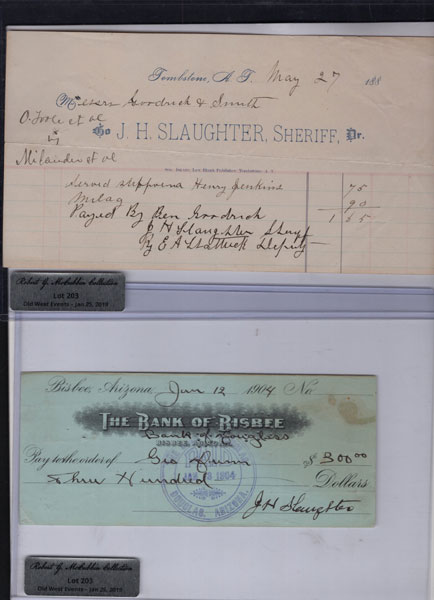 Tombstone, A. T. May 27 188
Messrs Goodrick & Smith
O.Toole et al
vs
To J. H. SLAUGHTER, SHERIFF, Dr.
Milander et al
Served Henry Jenkins 75
90
Payed By Ben Goodrick 1 55
J H Slaughter Sheriff
By E A Shattuck Deputy
Robert G. McCubbin Collection
Lot 203
Old West Events - Jan 25, 2019
Bisbee, Arizona, Jan 12 1904 No.
THE BANK OF BISBEE
BISBEE, ARIZONA
Bank of Douglass
Pay to the order of Geo Dunn $ 300 00
PAID
1904
DOUGLAS, ARIZONA.
Three Hundred Dollars
J H Slaughter
Robert G. McCubbin Collection
Lot 203
Old West Events - Jan 25, 2019